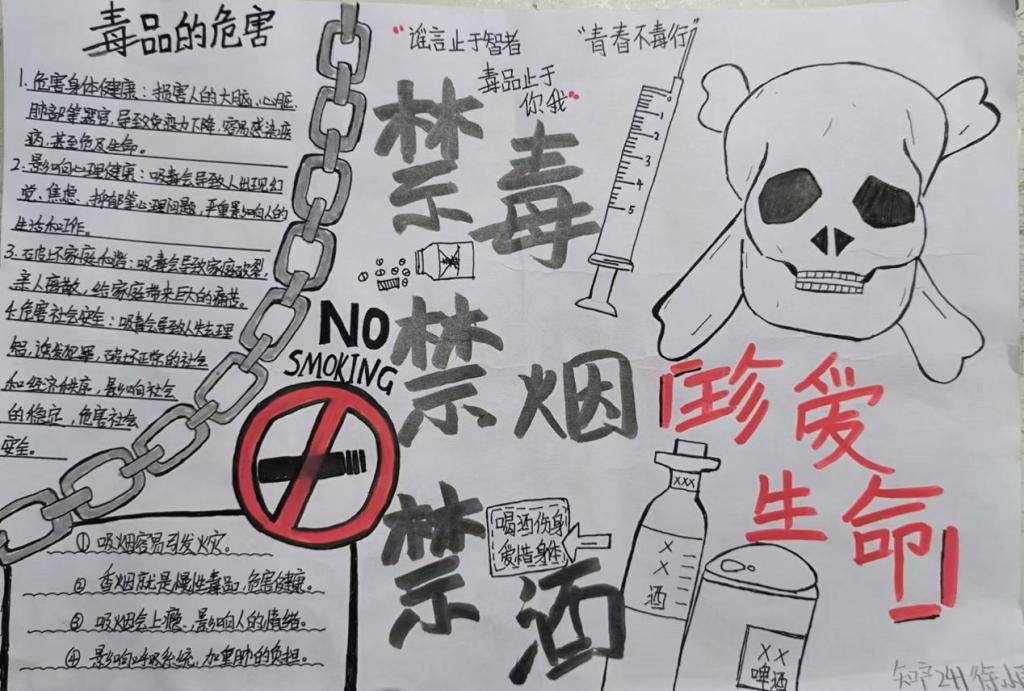 毒品的危害
1.危害身体健康：损害人的大脑、心脏、
肺部等器官，导致免疫力下降，容易感染疾
病，甚至危及生命。
2.影响心理健康：吸毒会导致人出现幻
觉、焦虑、抑郁等心理问题，严重影响人的
生活和工作。
3.破坏家庭和谐：吸毒会导致家庭破裂，
亲人离散，给家庭带来巨大的痛苦。
4.危害社会安全：吸毒会导致人失去理
智，诱发犯罪，破坏正常的社会
和经济秩序，影响社会
的稳定，危害社会
安全。
"谣言止于智者
毒品止于
你我"
"青春不毒行"
禁毒
1
2
3
4
5
NO
SMOKING
禁烟
「珍爱
生命」
禁酒
喝酒伤身
爱惜身体
XXX
X
X
酒
XX
啤酒
① 吸烟容易引发火灾。
② 香烟就是慢性毒品，危害健康。
③ 吸烟会上瘾、影响人的情绪。
④ 影响呼吸系统，加重肺的负担。
241 徐